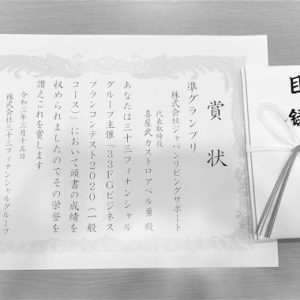 賞状
準グランプリ
株式会社ジャパンリビングサポート
代表取締役
喜屋武カストロアベル勇 殿
あなたは三十三フィナンシャル
グループ主催「33FGビジネス
プランコンテスト2020(一般
コース)」において頭書の成績を
収められましたのでその栄誉を
讃えこれを賞します
令和三年三月十五日
株式会社三十三フィナンシャルグループ
目録